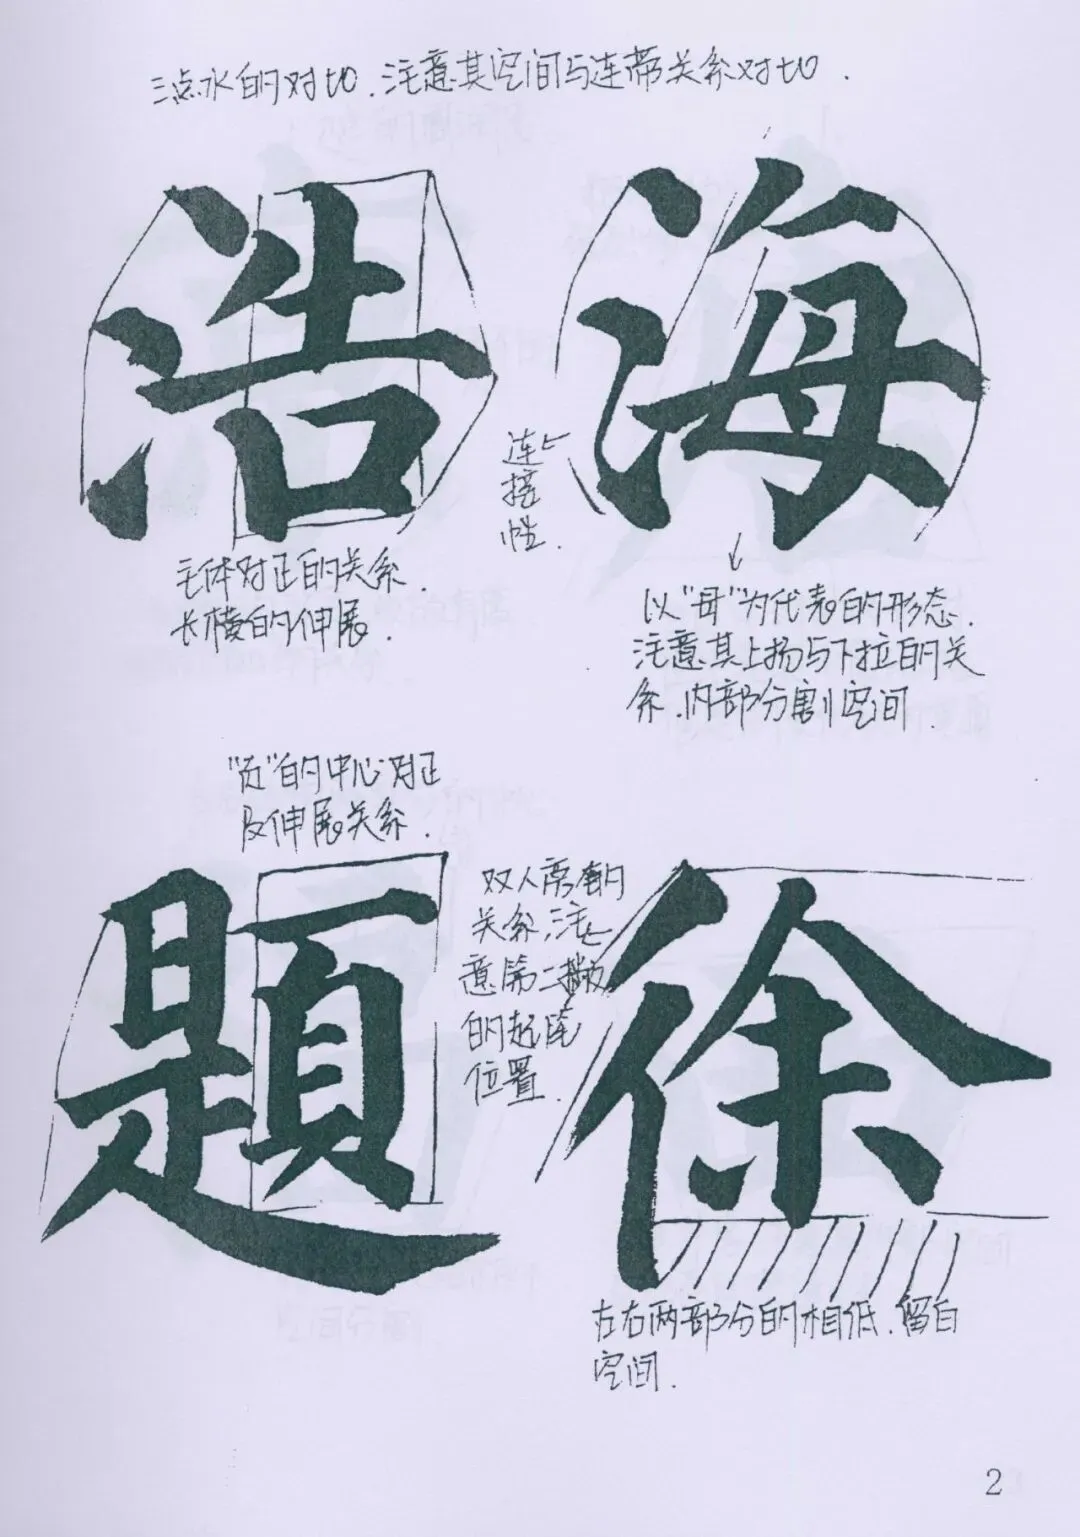 三点水的对切.注意其空间与连带关系对切.
浩
海
连
接
性.
主体对正的关系.
长横的伸展.
以“母”为代表的形态.
注意其上扬与下拉的关
系.内部分割空间.
“页”的中心对正
及伸展关系.
题
双人旁的
关系,注
意第二撇
的起笔
位置.
徐
左右两部分的相低.留白
空间.
2